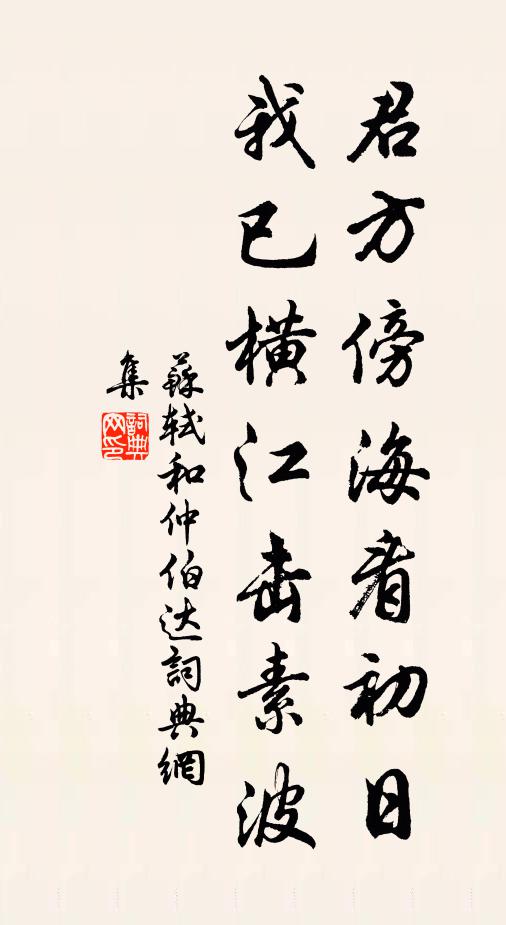 君方傍海看初日
我已横江击素波
蘇軾和仲伯达詞典網
集
詞典
网印